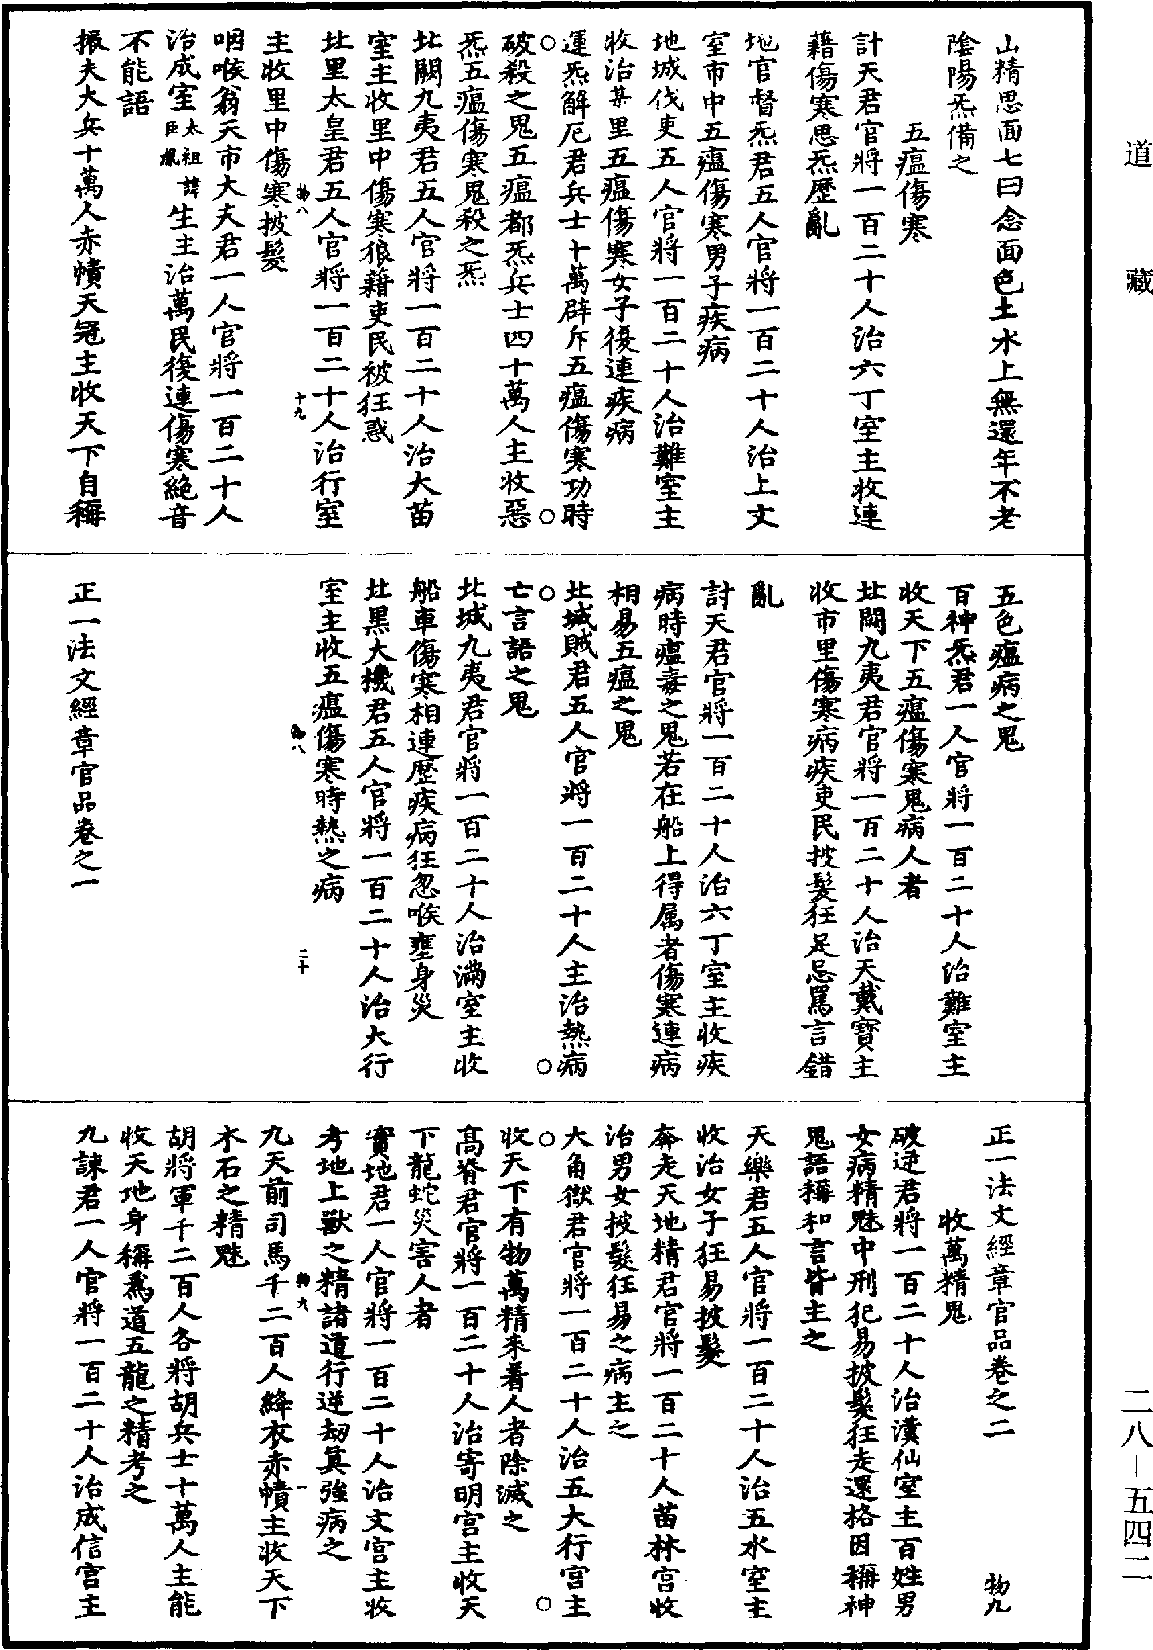 道藏
山精思面七曰念面色土水上無還年不老
陰陽炁備之
五瘟傷寒
計天君官將一百二十人治六丁室主收連
藉傷寒思炁歷亂
地官督炁君五人官將一百二十人治上文
室市中五瘟傷寒男子疾病
地城伐吏五人官將一百二十人治難室主
收治某里五瘟傷寒女子復連疾病
運炁解厄君兵士十萬辟斥五瘟傷寒功時
破殺之鬼五瘟都炁兵士四十萬人主收惡
炁五瘟傷寒鬼殺之炁
北闕九夷君五人官將一百二十人治大苗
室主收里中傷寒狼藉吏民被狂惑
北里太皇君五人官將一百二十人治行室
物八 十九
主收里中傷寒披髮
咽喉翁天市大夫君一人官將一百二十人
治成室太祖諱生主治萬民復連傷寒絕音
臣胤
不能語
振夫大兵十萬人赤幘天冠主收天下自稱
五色瘟病之鬼
百神炁君一人官將一百二十人治難室主
收天下五瘟傷寒鬼病人者
北闕九夷君官將一百二十人治天戴寶主
收市里傷寒病疾吏民披髮狂足忌罵言錯
亂
討天君官將一百二十人治六丁室主收疾
病時瘟毒之鬼若在船上得屬者傷寒連病
相易五瘟之鬼
北城賊君五人官將一百二十人主治熱病
亡言語之鬼
北城九夷君官將一百二十人治滿室主收
船車傷寒相連歷疾病狂忽喉壅身災
北黑大機君五人官將一百二十人治大行
物八 二十
室主收五瘟傷寒時熱之病
正一法文經章官品卷之一
正一法文經章官品卷之二 物九
收萬精鬼
破逆君將一百二十人治漢仙室主百姓男
女病精魅中刑犯易披髮狂走還格因稱神
鬼語稱和言皆主之
天樂君五人官將一百二十人治五水室主
收治女子狂易披髮
奔走天地精君官將一百二十人苗林宮收
治男女披髮狂易之病主之
大角獄君官將一百二十人治五大行宮主
收天下有物萬精來著人者除滅之
高脊君官將一百二十人治寄明宮主收天
下龍蛇災害人者
實地君一人官將一百二十人治文宮主收
考地上獸之精諸道行逆劫箕強病之
物九 一
九天前司馬千二百人絳衣赤幘主收天下
木石之精魅
胡將軍千二百人各將胡兵士十萬人主能
收天地身稱為道五龍之精考之
九諫君一人官將一百二十人治成信宮主
二八－五四二